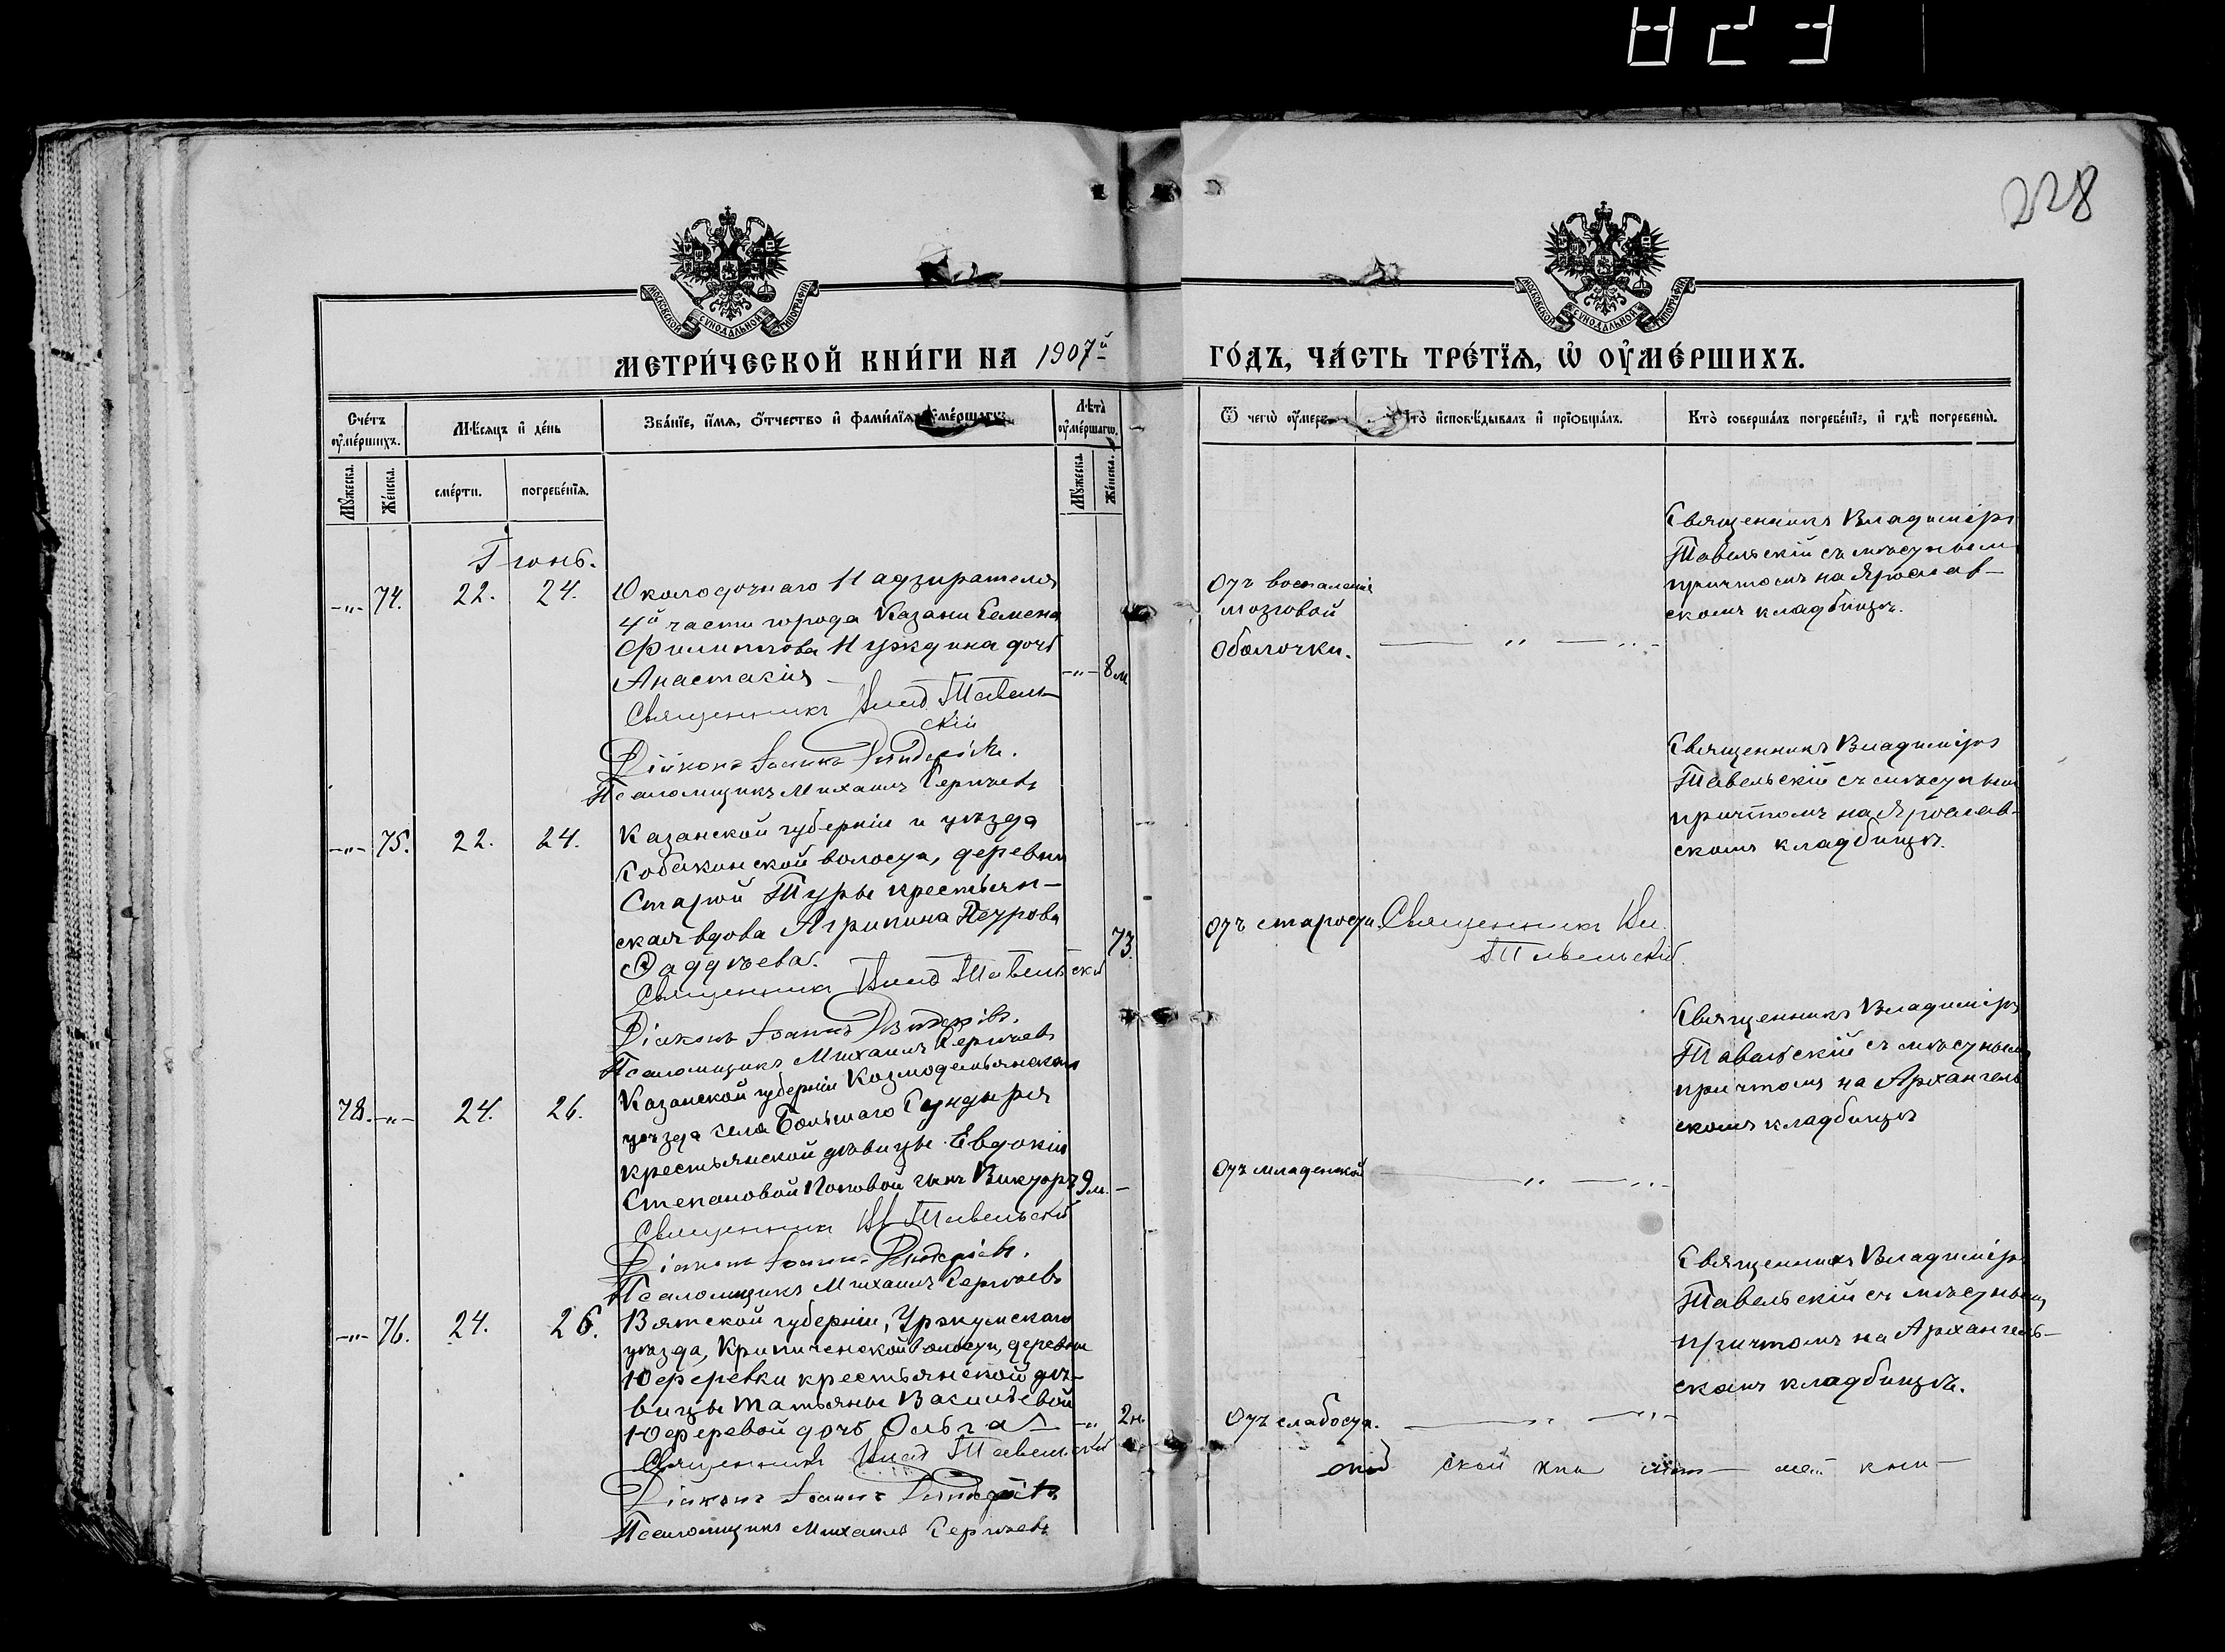 228
МЕТРИ́ЧЕСКОЙ КНИ́ГИ НА 1907й
ГО́ДЪ, ЧА́СТЬ ТРЕ́ТЇѦ, Ѡ҆ ОУ҆МЕ́РШИХЪ.
Сче́тъ оу҆ме́ршихъ.
Мѣ́сяцъ и҆ де́нь
Зва́нїе, и҆́мѧ, ѻ҆́тчество и҆ фами́лїѧ
Лѣта̀ оу҆ме́ршагѡ.
Ѿ чегѡ̀ оу҆́меръ
Кто̀ и҆сповѣ́дывалъ и҆ прїѡбща́лъ.
Кто̀ соверша́лъ погребе́нїе, и҆ гдѣ̀ погребены̀.
Мꙋ́жеска.
Же́нска.
сме́рти.
погребе́нїѧ.
Мꙋ́жеска.
Же́нска.
Іюнь.
-"- 74. 22. 24.
Околодочнаго Надзирателя
4й части города Казани Семена
Филиппова Нуждина дочь
Анастасія -"- 8 м
Священникъ Влад. Тавель-
скій
Діаконъ Іоаннъ
Псаломщикъ Михаилъ Сергѣевъ
Отъ воспаленія
мозговой
оболочки.
Священникъ Владиміръ
Тавельскій съ мѣстнымъ
причтомъ на Ярослав-
скомъ кладбищѣ.
-"- 75. 22. 24.
Казанской губерніи и уѣзда
Собакинской волости, деревни
Старой Туры крестьян-
ская вдова Агрипина Петрова
Фаддѣева. 73.
Священникъ Влад Тавельскій
Діаконъ Іоаннъ
Псаломщикъ Михаилъ Сергѣевъ
Отъ старости.
Священникъ Вл.
Тавельскій.
Священникъ Владиміръ
Тавельскій съ мѣстнымъ
причтомъ на Ярослав-
скомъ кладбищѣ.
78. -"- 24. 26.
Казанской губерніи Козмодемьянскаго
уѣзда села Большаго Сундыря
крестьянской дѣвицы Евдокіи
Степановой Поповой сынъ Викторъ 9 м. -
Священникъ Вл Тавельскій
Діаконъ Іоаннъ
Псаломщикъ Михаилъ Сергѣевъ
Отъ младенской
Священникъ Владиміръ
Тавельскій съ мѣстнымъ
причтомъ на Архангель
скомъ кладбищѣ
-"- 76. 24. 26.
Вятской губерніи, Уржумскаго
уѣзда, волости, деревни
крестьянской дѣ-
вицы Татьяны Васильевой
дочь Ольга -"- 2 н.
Священникъ Влад Тавельскій
Діаконъ Іоаннъ
Псаломщикъ Михаилъ Сергѣевъ
Отъ слабости.
Священникъ Владиміръ
Тавельскій съ мѣстнымъ
причтомъ на Архангель-
скомъ кладбищѣ.
ской